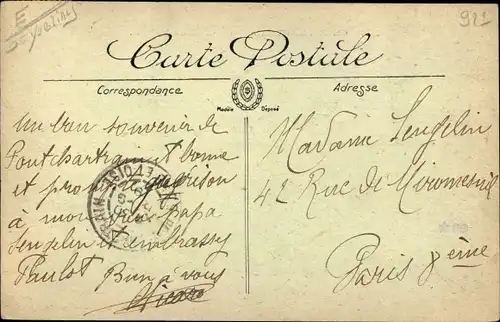 E
921
Carte Postale
Correspondance
Adresse
Modèle Déposé
Un bon souvenir de
Pontchartrain et bonne
et prompte guérison
à mon papa
Lengelin embrassez
Paulot Bien à vous
Madame Lengelin
42 Rue de Miromesnil
Paris 8ème